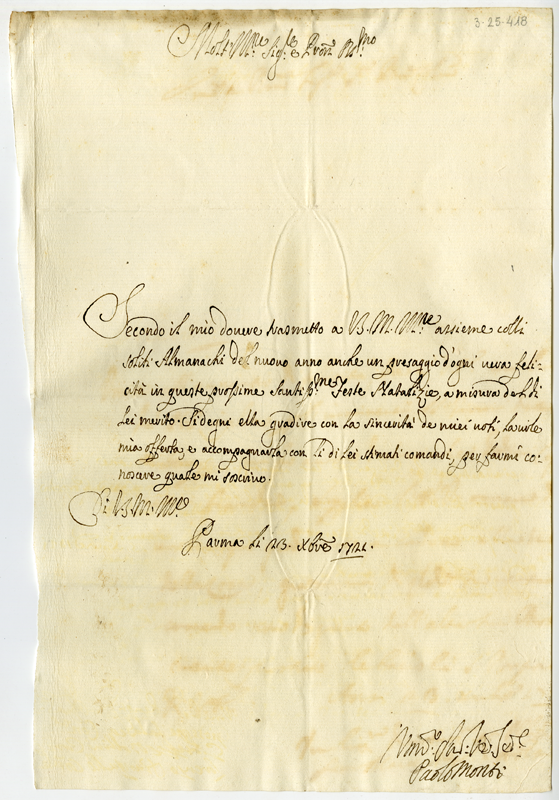 3-25-418
Molt' Ill.re Sig.re e Pron Col.mo
Secondo il mio dovere trasmetto a V.S. M. Ill.re assieme colli
soliti Almanachi del nuovo anno anche un presaggio d'ogni vera feli-
cità in queste prossime Santiss.me Feste Natalizie, a misura del di
Lei merito. Si degni ella gradire con la sincerità de miei voti, la vile
mia offerta e accompagnarla con li di lei stimati comandi, per farmi co-
noscere quale mi soscrivo.
Di V.S. M. Ill.re
Parma li 23. Xbre 1721.
Paolo Monti